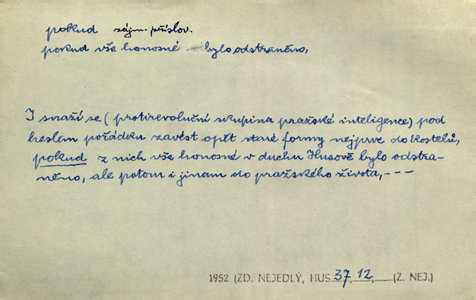 pokud zájm. příslov.
pokud vše honosné – bylo odstraněno,
I snaží se (protirevoluční skupina pražské inteligence) pod
heslem pořádku zavést opět staré formy nejprve do kostelů,
pokud z nich vše honosné v duchu Husově bylo odstra-
něno, ale potom i jinam do pražského života, – – –
1952 (ZD. NEJEDLÝ, HUS 37, 12 (Z. NEJ.)